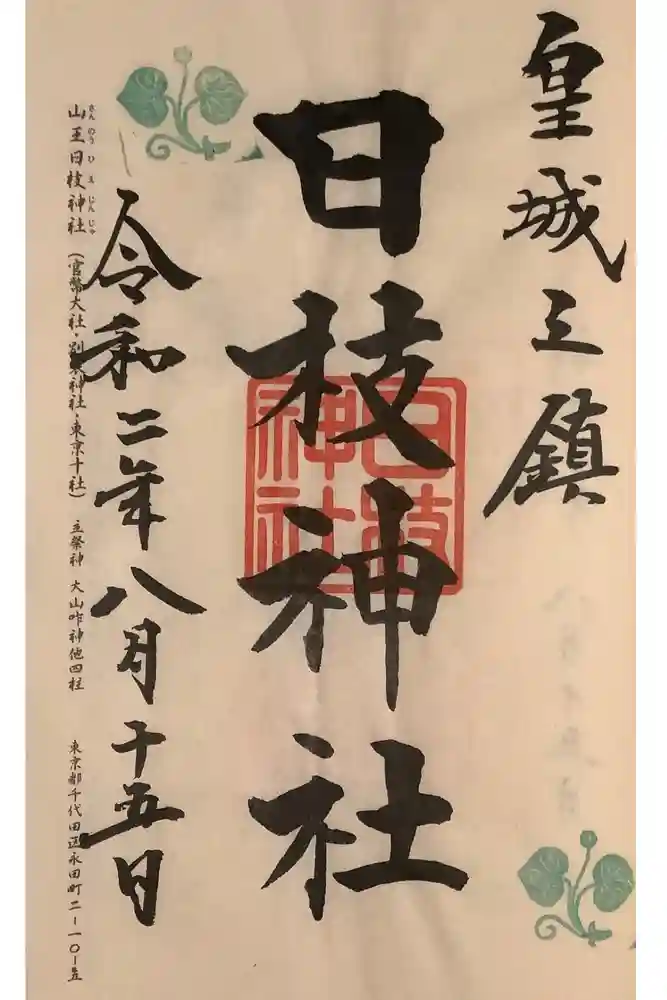 皇城之鎮
日枝神社
日枝神社
令和二年八月十五日
さんのう ひ え じんじゃ
山王日枝神社 (官幣大社・別表神社・東京十社) 主祭神 大山咋神他四柱 東京都千代田区永田町二ー一〇ー五